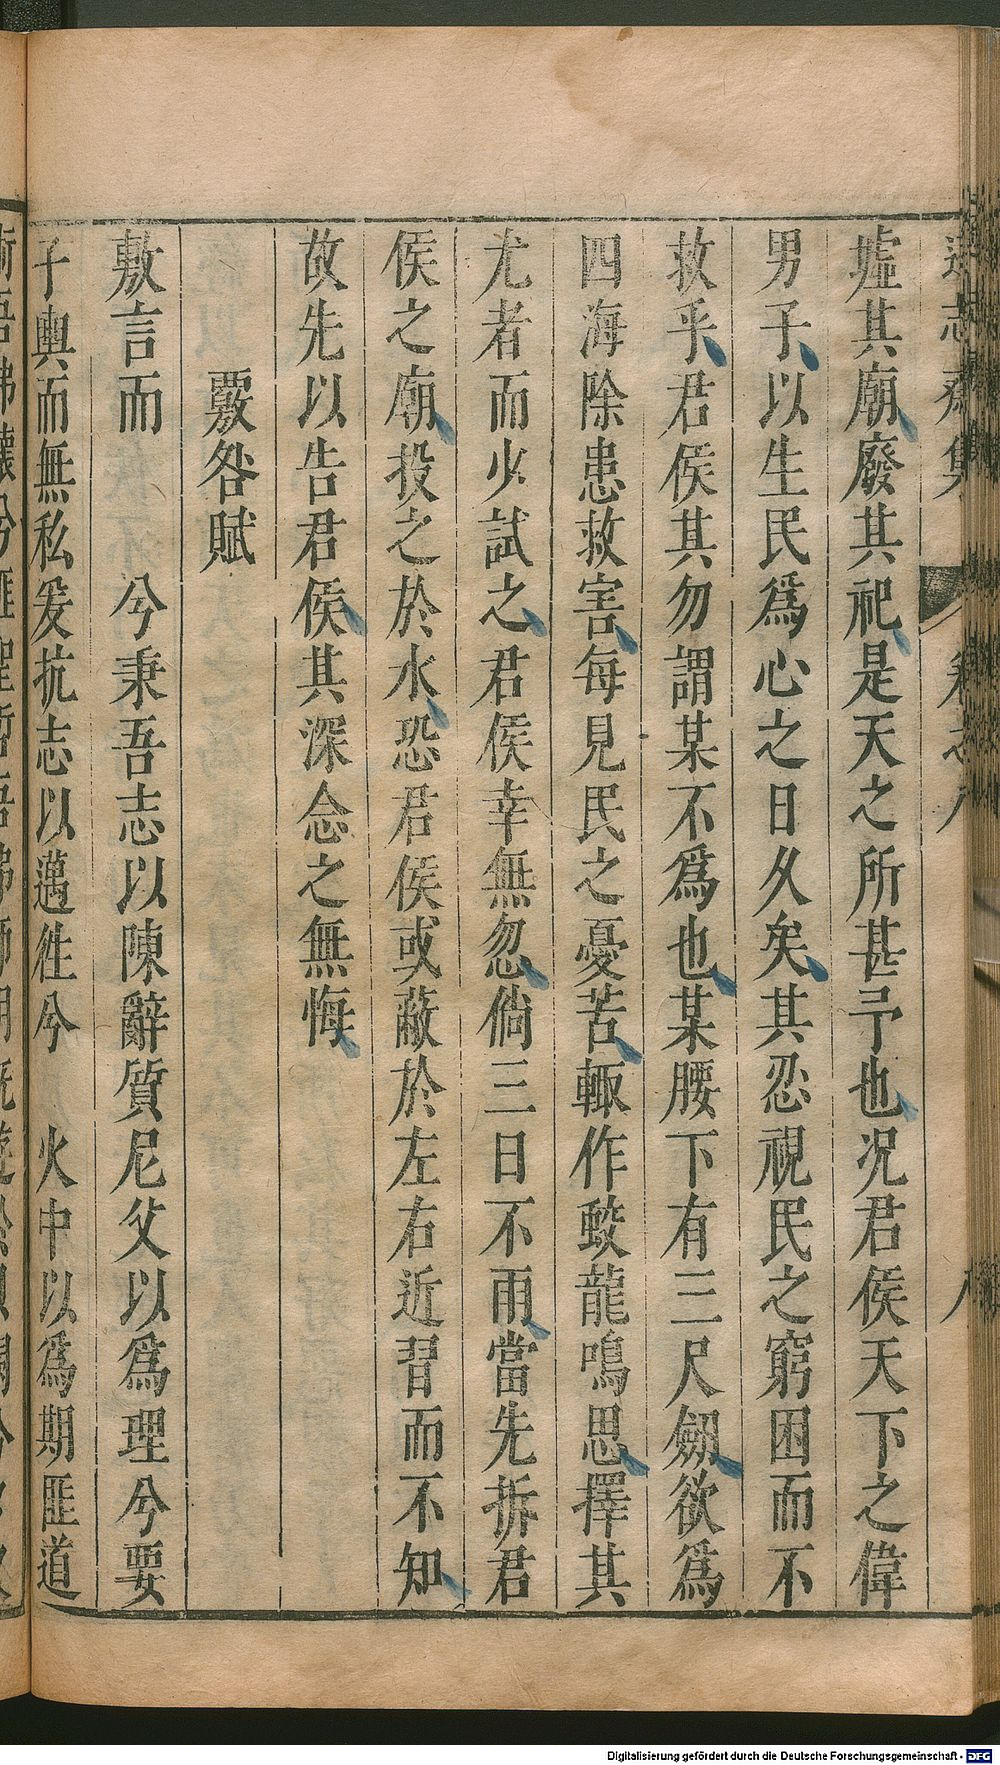 遜志齋集 卷之八 八
墟其廟廢其祀是天之所甚予也况君侯天下之偉
男子以生民爲心之日久矣其忍視民之窮困而不
救乎君侯其勿謂某不爲也某腰下有三尺劒欲爲
四海除患救害每見民之憂苦輙作蛟龍鳴思擇其
尤者而少試之君侯幸無忽倘三日不雨當先拆君
侯之廟投之於水恐君侯或蔽於左右近習而不知
故先以告君侯其深念之無悔
覈咎賦
敷言而 兮秉吾志以陳辭質尼父以爲理兮要
子輿而無私爰抗志以邁徃兮 火中以爲期匪道
Digitalisierung gefördert durch die Deutsche Forschungsgemeinschaft - DFG